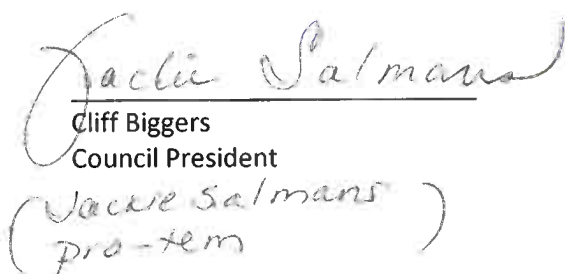 Jackie Salmans
Cliff Biggers
Council President
(Jackie Salmans
pro-tem)